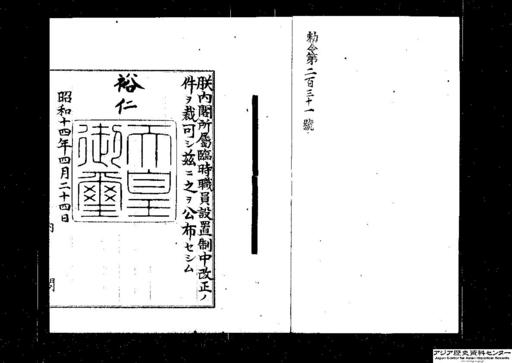 勅令第二百三十一號
朕內閣所屬臨時職員設置制中改正ノ
件ヲ裁可シ茲ニ之ヲ公布セシム
裕仁
天皇御璽
昭和十四年四月二十四日
內閣
アジア歴史資料センター
Japan Center for Asian Historical Records